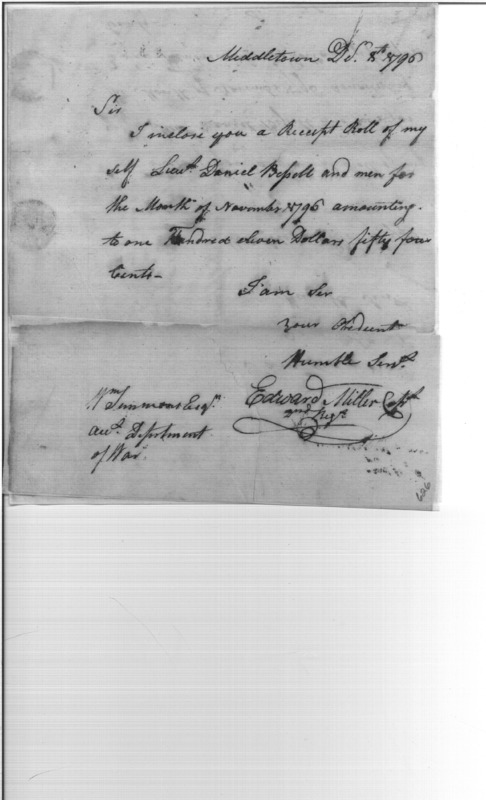 Middletown Dr. 8th 1796
Sir
I inclose you a Receipt Roll of my
self Lieut. Daniel Bissell and men for
the Month of November 1796 amounting
to one Hundred eleven Dollars fifty four
Cents-
I am Ser
your Obedient
Humble Servt.
Edward Miller Capt.
2nd Regt.
Wm Simmons Esqr.
acct. Department
of War.
626